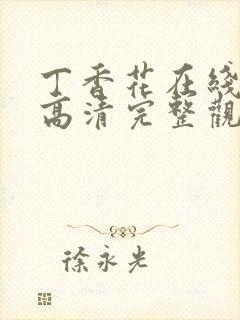 丁香花在綫
高清完整觀
徐永光